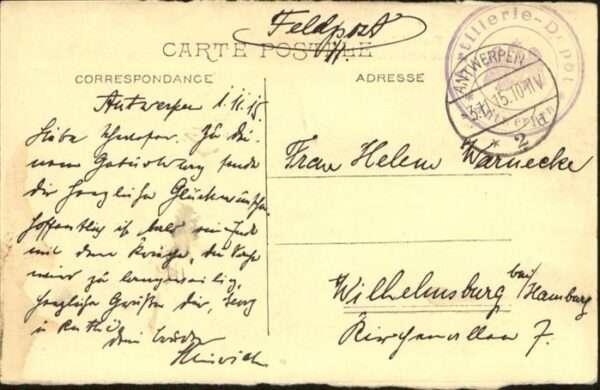 Feldpost
CARTE POSTALE
CORRESPONDANCE
ADRESSE
Artillerie-Depot
Antwerpen
ANTWERPEN
Antwerpen 1.11.15.
Liebe Schwester. Zu Dei-
nem Geburtstag sende
dir herzliche Glückwünsche.
Hoffentlich ist bald ein Ende
mit dem Kriege, die Sache
wird zu langweilig,
herzliche Grüße dir,
dein Bruder
Heinrich
Frau Helene Warnecke
Wilhelmsburg bei/Hamburg
Kirchenallee 7.